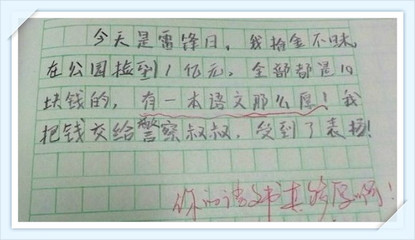 今天是雷锋日，我拾金不昧，
在公园捡到1亿元，全部都是10
块钱的，有一本语文那么厚！我
把钱交给警察叔叔，受到了表扬！
你的语文书真够厚啊！